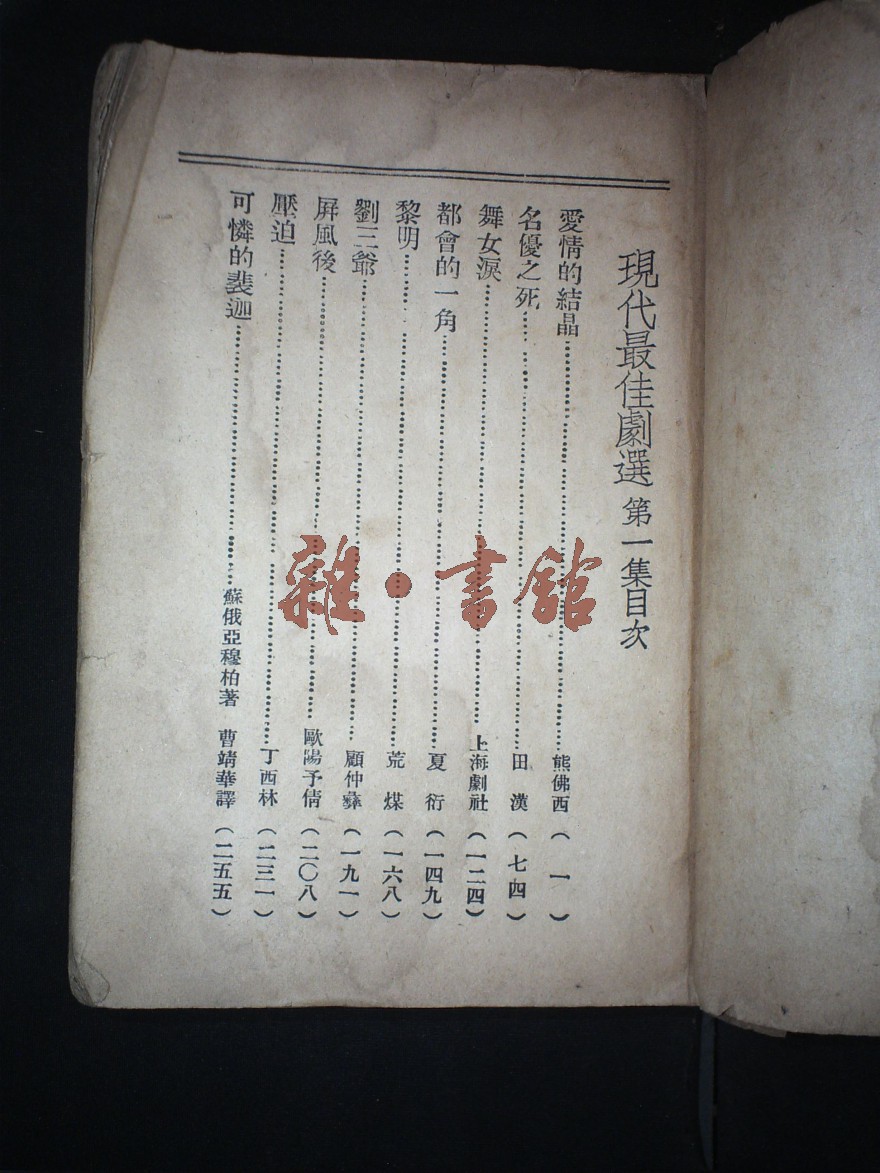 現代最佳劇選 第一集目次
愛情的結晶……熊佛西(一)
名優之死……田漢(七四)
舞女淚……上海劇社(一二四)
都會的一角……夏衍(一四九)
黎明……荒煤(一六八)
劉三爺……顧仲彝(一九一)
屏風後……歐陽予倩(二〇八)
壓迫……丁西林(二三一)
可憐的裴迦……蘇俄亞穆柏著 曹靖華譯(二五五)
雜·書館